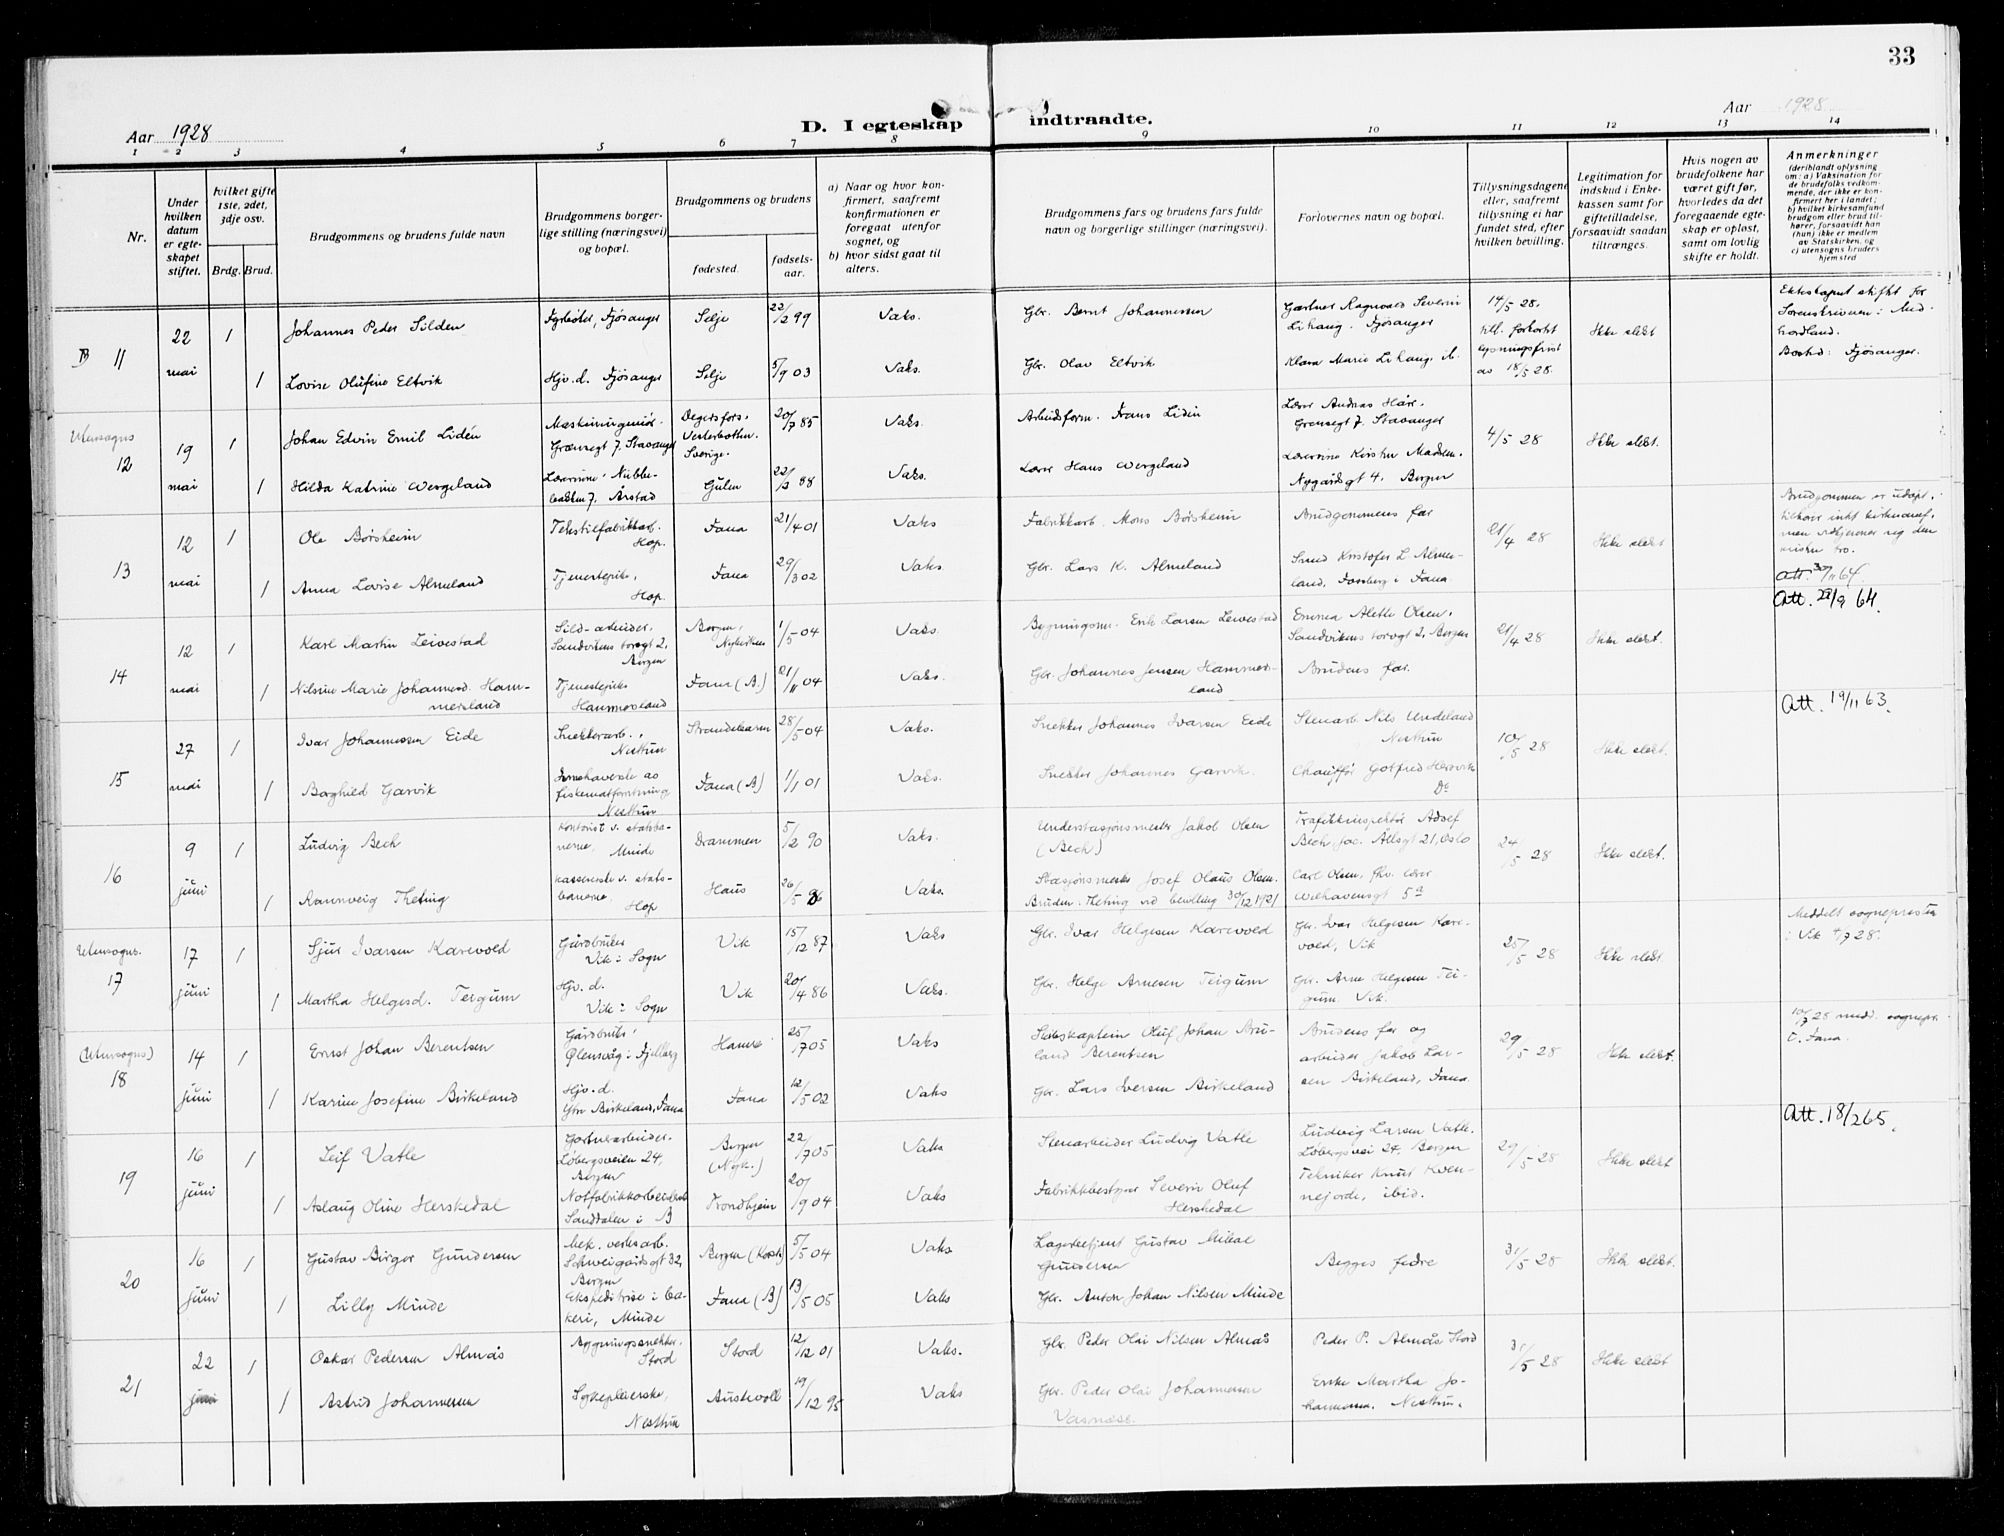 33
Aar 1928
D. I egteskap indtraadte.
Aar 1928
1 2 3 4 5 6 7 8 9 10 11 12 13 14
Nr.
Under hvilken datum er egteskapet stiftet.
hvilket gifte 1ste, 2det, 3dje osv.
Brdg. Brud.
Brudgommens og brudens fulde navn
Brudgommens borgerlige stilling (næringsvei) og bopæl.
Brudgommens og brudens
fødested.
fødselsaar.
a) Naar og hvor konfirmert, saafremt konfirmationen er foregaat utenfor sognet, og
b) hvor sidst gaat til alters.
Brudgommens fars og brudens fars fulde navn og borgerlige stillinger (næringsvei).
Forlovernes navn og bopæl.
Tillysningsdagene eller, saafremt tillysning ei har fundet sted, efter hvilken bevilling.
Legitimation for indskud i Enkekassen samt for giftetilladelse, forsaavidt saadan tiltrænges.
Hvis nogen av brudefolkene har været gift før, hvorledes da det foregaaende egteskap er opløst, samt om lovlig skifte er holdt.
Anmerkninger
(deriblandt oplysning om: a) Vaksination for de brudefolks vedkommende, der ikke er konfirmert her i landet; b) hvilket kirkesamfund brudgom eller brud tilhører, forsaavidt han (hun) ikke er medlem av Statskirken, og c) utensogns bruders hjemsted
11 22 mai 1 Johannes Peder Silden Fyrbøter, Fjøsanger Selje 22/2 99 Vaks. Gbr. Bernt Johannessen Gartner Ragnvald Severin Lihaug. Fjøsanger 14/5 28. till. forkortet lysningsfrist av 18/5 28. Ikke slekt Ekteskapet stiftet for Sorenskriveren i Midhordland. Bosted: Fjøsanger.
1 Lovise Olufine Eltvik Hjv. d. Fjøsanger Selje 5/9 03 Vaks. Gbr. Olav Eltvik Klara Marie Lihaug. ib.
Utensogns 12 19 mai 1 Johan Edvin Emil Lidén Maskiningeniør. Grensegt 7. Stavanger Degersfors. Vesterbotten. Sverige. 20/7 85 Vaks. Arbeidsform. Frans Lidén Lærer Andreas Hår. Grensegt 7. Stavanger 4/5 28 Ikke slekt.
1 Hilda Katrine Wergeland Lærerinne. Nubbebakken 7. Årstad Gulen 22/2 88 Vaks. Lærer Hans Wergeland Lærerinne Kirsten Madsen. Nygårdsgt 4. Bergen
13 12 mai 1 Ole Børsheim Tekstilfabrikkarb. Hop. Fana 21/4 01 Vaks Fabrikkarb. Mons Børsheim Brudgommens far 21/4 28 Ikke slekt Brudgommen er udøpt, tilhører intet kirkesamf, men vedkjenner sig den kristne tro. Att. 30/11 64.
1 Anna Lovise Almeland Tjenestepike, Hop. Fana 29/3 02 Vaks Gbr. Lars K. Almeland Smed Kristofer L Almeland, Fossberg i Fana. Att. 29/9 64.
14 12 mai 1 Karl Martin Leivestad Sild-arbeider. Sandvikens torvgt 2, Bergen Bergen, Nykirken 1/5 04 Vaks. Bygningssn. Erik Larsen Leivestad Emma Alette Olsen. Sandvikens torvgt 2, Bergen 21/4 28 Ikke slekt.
1 Nilsine Marie Johannesd. Hammersland Tjenestepike Hammersland Fana (B.) 21/11 04 Vaks. Gbr. Johannes Jensen Hammersland Brudens far.
15 27 mai 1 Ivar Johannessen Eide Snekkerarb., Nesttun Strandebarm 28/5 04 Vaks. Snekker Johannes Ivarsen Eide Stenarb. Nils Undeland Nesttun 10/5 28 Ikke slekt Att. 19/11 63.
1 Borghild Garvik Innehaverske av fiskematforretning Nesttun Fana (B) 1/1 01 Vaks. Snekker Johannes Garvik. Chauffør Gotfred Hersvik Do
16 9 juni 1 Ludvig Bech Kontorist v. statsbanerne, Minde Drammen 5/2 90 Vaks. Understasjonsmester Jakob Olsen (Bech) Trafikkinspektør Adsef Bech, Jac. Ållsgt 21, Oslo 24/5 28 Ikke slekt.
1 Rannveig Theting Kassererske v. statsbanerne. Hop Haus 26/5 86 Vaks. Stasjonsmester Josef Olaus Olsen. Bruden: Theting ved bevilling 30/12 1921 Carl Olsen, fhv. lærer Welhavensgt 5a
Utensogns. 17 17 juni 1 Sjur Ivarsen Karevold Gårdbruker Vik i Sogn Vik 15/12 87 Vaks Gbr. Ivar Helgesen Karevold Gbr. Ivar Helgesen Karevold, Vik 25/5 28 Ikke slekt Meddelt sogneprest i Vik 4/7 28.
1 Martha Helgesd. Teigum Hjv. d. Vik i Sogn Vik 20/4 86 Vaks. Gbr. Helge Arnesen Teigum Gbr. Arne Helgesen Teigum. Vik.
(Utensogns) 18 14 juni 1 Ernst Johan Berentsen Gårdbruker Ølensvåg i Fjelberg Hamre 25/7 05 Vaks Skibskaptein Oluf Johan Bruland Berentsen Brudens far og arbeider Jakob Larsen Birkeland, Fana. 29/5 28 Ikke slekt. 10/7 28 medd. sognepr. Fana.
1 Karine Josefine Birkeland Hjv. d. Ytre Birkeland, Fana Fana 12/5 02 Vaks Gbr. Lars Iversen Birkeland
19 16 juni 1 Leif Vatle Gartnerarbeider. Løbergsveien 24, Bergen Bergen (Nyk.) 22/7 05 Vaks Stenarbeider Ludvig Vatle Ludvig Larsen Vatle. Løbergsvei 24, Bergen 29/5 28 Ikke slekt Att. 18/2 65.
1 Aslaug Oline Herskedal Notfabrikkarbeiderske Sanddalen i B Trondhjem 20/9 04 Vaks Fabrikkbestyrer Severin Oluf Herskedal Tekniker Knut Kvennejorde, ibid.
20 16 juni 1 Gustav Birger Gundersen Mek. verksarb. Schweigårdsgt 32, Bergen Bergen (Korsk) 5/5 04 Vaks Lagerbetjent Gustav Mikal Gundersen Begges fedre 31/5 28 Ikke slekt.
1 Lilly Minde Ekspeditrise i bakeri, Minde Fana (B) 13/5 05 Vaks Gbr. Anton Johan Nilsen Minde
21 22 juni 1 Oskar Pedersen Almås Bygningssnekker. Stord Stord 12/12 01 Vaks. Gbr. Peder Olai Nilsen Almås Peder P. Almås Stord 31/5 28 Ikke slekt
1 Astrid Johannessen Sykepleierske, Nesttun Austevoll 19/12 95 Vaks Gbr. Peder Olai Johannessen Vasnese. Enke Martha Johannessen. Nesttun.